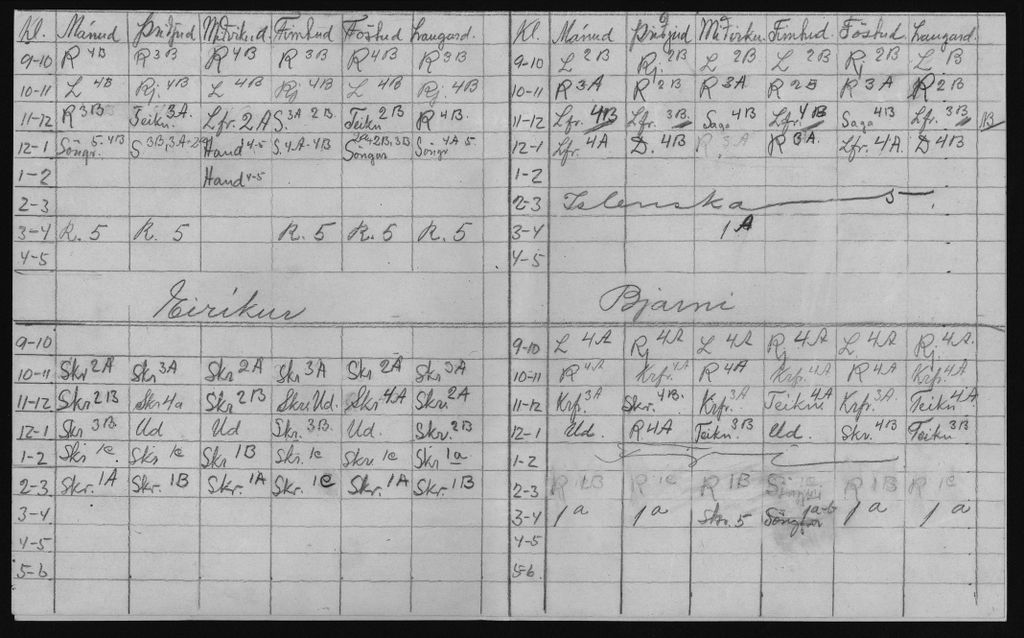 Kl. Mánud Þriðjud Miðvikud. Fimtud Föstud Laugard.
9-10 R 4B R 3B R 4B R 3B R 4B R 3B
10-11 L 4B Rj. 4B L 4B Rj 4B L 4B Rj. 4B
11-12 R 3B Teikn. 3A Lfr. 2A S. 3A 2B Teikn 2B R 4B.
12-1 Söngr. 5. 4B S 3B, 3A Hand 4-5 S. 4A-4B Söngur 2B, 3B Söngr 4A 5
1-2 Hand 4-5
2-3
3-4 R. 5 R. 5 R. 5 R. 5 R. 5
4-5
Eiríkur
9-10
10-11 Skr 2A Skr 3A Skr 2A Skr 3A Skr 2A Skr 3A
11-12 Skr 2B Skr 4a Skr 2B Skr. Ud. Skr 4A Skr. 2A
12-1 Skr 3B. Ud Ud Skr. 3B. Ud. Skr. 2B
1-2 Skr 1c. Skr 1c Skr 1B Skr. 1c Skr. 1c Skr 1a
2-3 Skr. 1A Skr. 1B Skr. 1A Skr. 1c Skr. 1A Skr. 1B
3-4
4-5
5-6
Kl. Mánud Þriðjud Miðviku. Fimtud. Föstud Laugard.
9-10 L 2B Rj. 2B L 2B L 2B Rj 2B L B
10-11 R 3A R 2B R 3A R 2B R 3A R 2B
11-12 Lfr. 4B Lfr. 3B Saga 4B Lfr. 4B Saga 4B Lfr. 3B 1B
12-1 Lfr. 4A D. 4B R 3A R 3A. Lfr. 4A. D 4B
1-2
2-3 Islenska 5
3-4 1A
4-5
Bjarni
9-10 L 4A Rj 4A L 4A Rj 4A L. 4A Rj. 4A.
10-11 R 4A Krfr. 4A R 4A Krfr. 4A R 4A Krfr. 4A
11-12 Krfr. 3A Skr. 4B. Krfr. 3A Teikni 4A Krfr. 3A Teikn 4A
12-1 Ud. R. 4A Teikn. 3B Ud. Skr. 4B Teikn 3B
1-2
2-3 R 1B R 1c R 1B 1c R 1B R 1c
3-4 1a 1a Skr. 5 Söngur 1a-b 1a 1a
4-5
5-6.